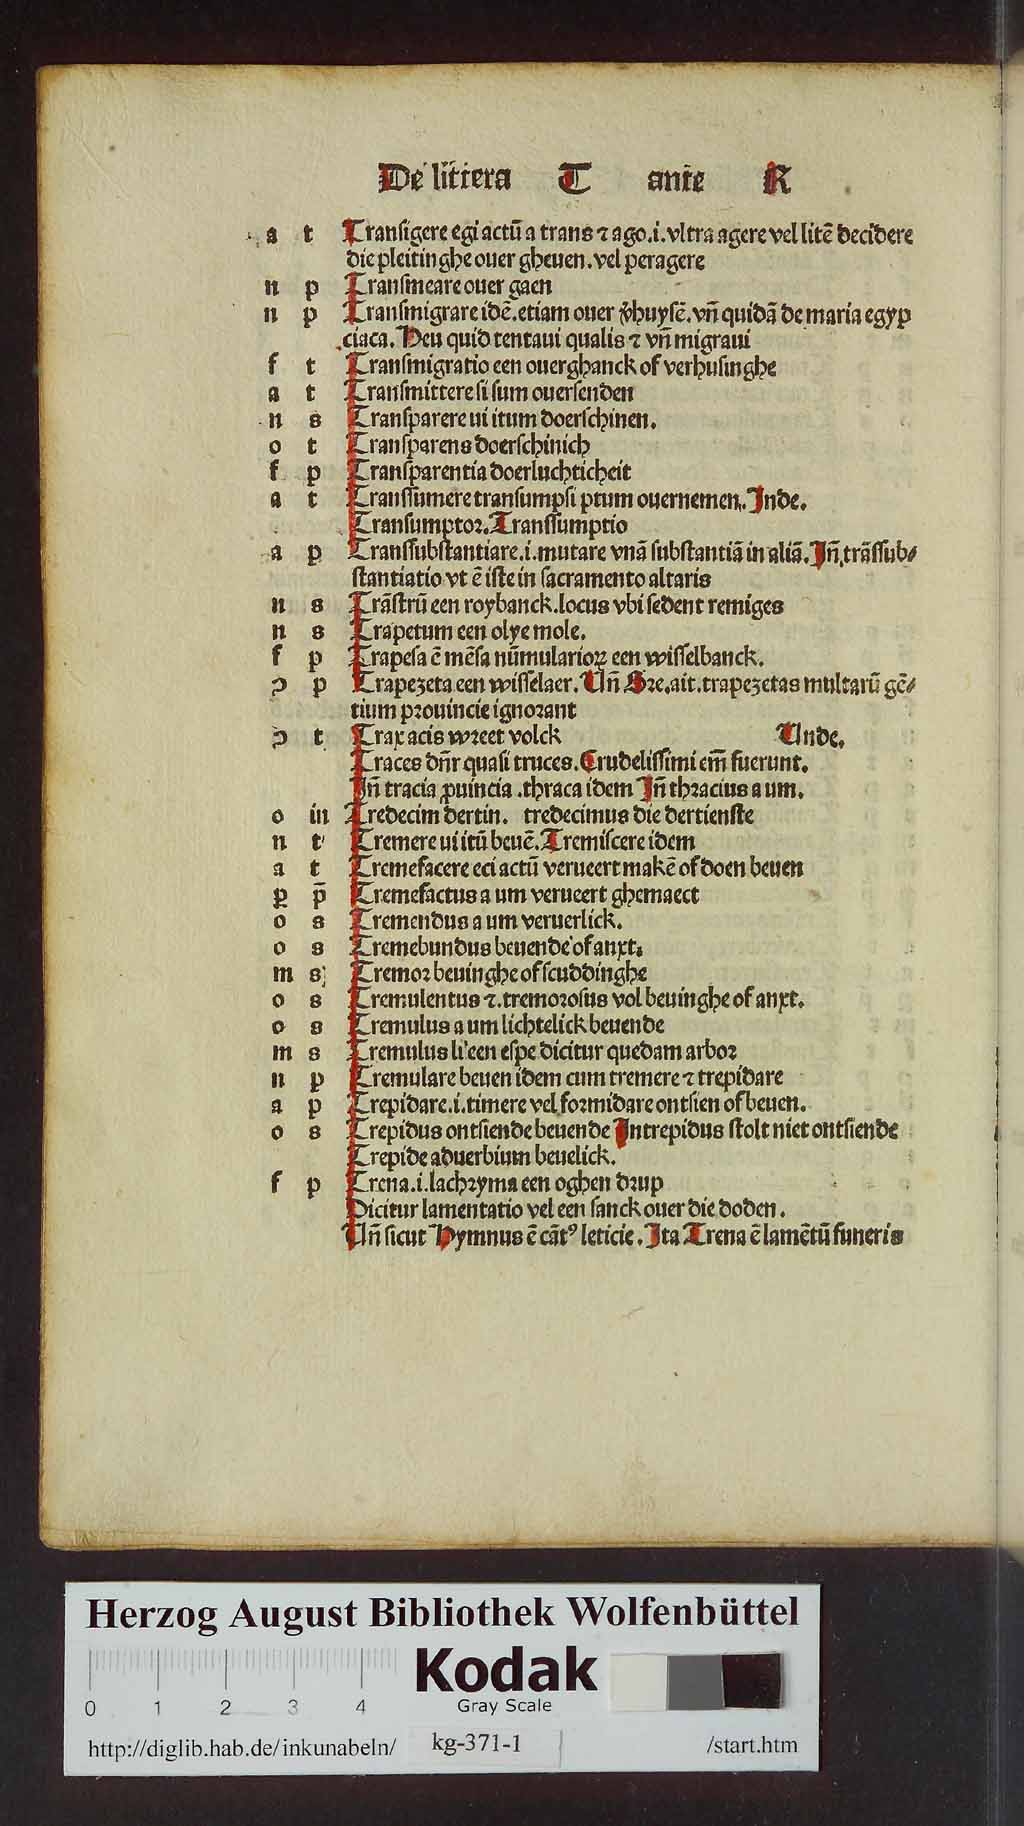 De littera T ante R
a t Transigere egi actū a trans ⁊ ago.i.vltra agere vel litē decidere
die pleitinghe ouer gheuen.vel peragere
n p Transmeare ouer gaen
n p Transmigrare idē.etiam ouer v̓huysē.vn̄ quidā de maria egyp
ciaca. Heu quid tentaui qualis ⁊ vn̄ migraui
f t Transmigratio een ouerghanck of verhusinghe
a t Transmittere si sum ouersenden
n s Transparere ui itum doerschinen.
o t Transparens doerschinich
f p Transparentia doerluchticheit
a t Transsumere transumpsi ptum ouernemen. Inde.
Transumptor. Transsumptio
a p Transsubstantiare.i.mutare vnā substantiā in aliā. In̄ trāssub⸗
stantiatio vt ē iste in sacramento altaris
n s Trāstrū een roybanck.locus vbi sedent remiges
n s Trapetum een olye mole.
f p Trapesa ē mēsa nūmularioꝝ een wisselbanck.
ↄ p Trapezeta een wisselaer. Un̄ Gre.ait.trapezetas multarū gē⸗
tium prouincie ignorant
ↄ t Trax acis wreet volck Unde.
Traces dn̄r quasi truces. Crudelissimi em̄ fuerunt.
In̄ tracia ꝓuincia .thraca idem In̄ thracius a um.
o in Tredecim dertin. tredecimus die dertienste
n t Tremere ui itū beuē. Tremiscere idem
a t Tremefacere eci actū verueert makē of doen beuen
ꝑ p̄ Tremefactus a um verueert ghemaect
o s Tremendus a um veruerlick.
o s Tremebundus beuende of anxt.
m s Tremor beuinghe of scuddinghe
o s Tremulentus ⁊.tremorosus vol beuinghe of anxt.
o s Tremulus a um lichtelick beuende
m s Tremulus li een espe dicitur quedam arbor
n p Tremulare beuen idem cum tremere ⁊ trepidare
a p Trepidare.i.timere vel formidare ontsien of beuen.
o s Trepidus ontsiende beuende Intrepidus stolt niet ontsiende
Trepide aduerbium beuelick.
f p Trena.i.lachryma een oghen drup
Dicitur lamentatio vel een sanck ouer die doden.
Un̄ sicut Hymnus ē cātꝰ leticie. Ita Trena ē lamētū funeris
Herzog August Bibliothek Wolfenbüttel
Kodak
Gray Scale
0 1 2 3 4
http://diglib.hab.de/inkunabeln/ kg-371-1 /start.htm